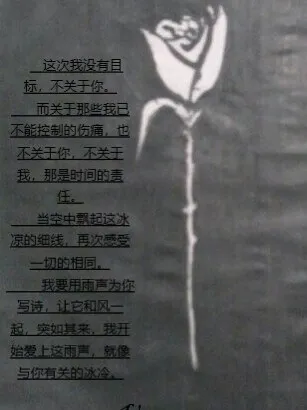 这次我没有目
标，不关于你。
而关于那些我已
不能控制的伤痛，也
不关于你，不关于
我，那是时间的责
任。
当空中飘起这冰
凉的细线，再次感受
一切的相同。
我要用雨声为你
写诗，让它和风一
起，突如其来，我开
始爱上这雨声，就像
与你有关的冰冷。